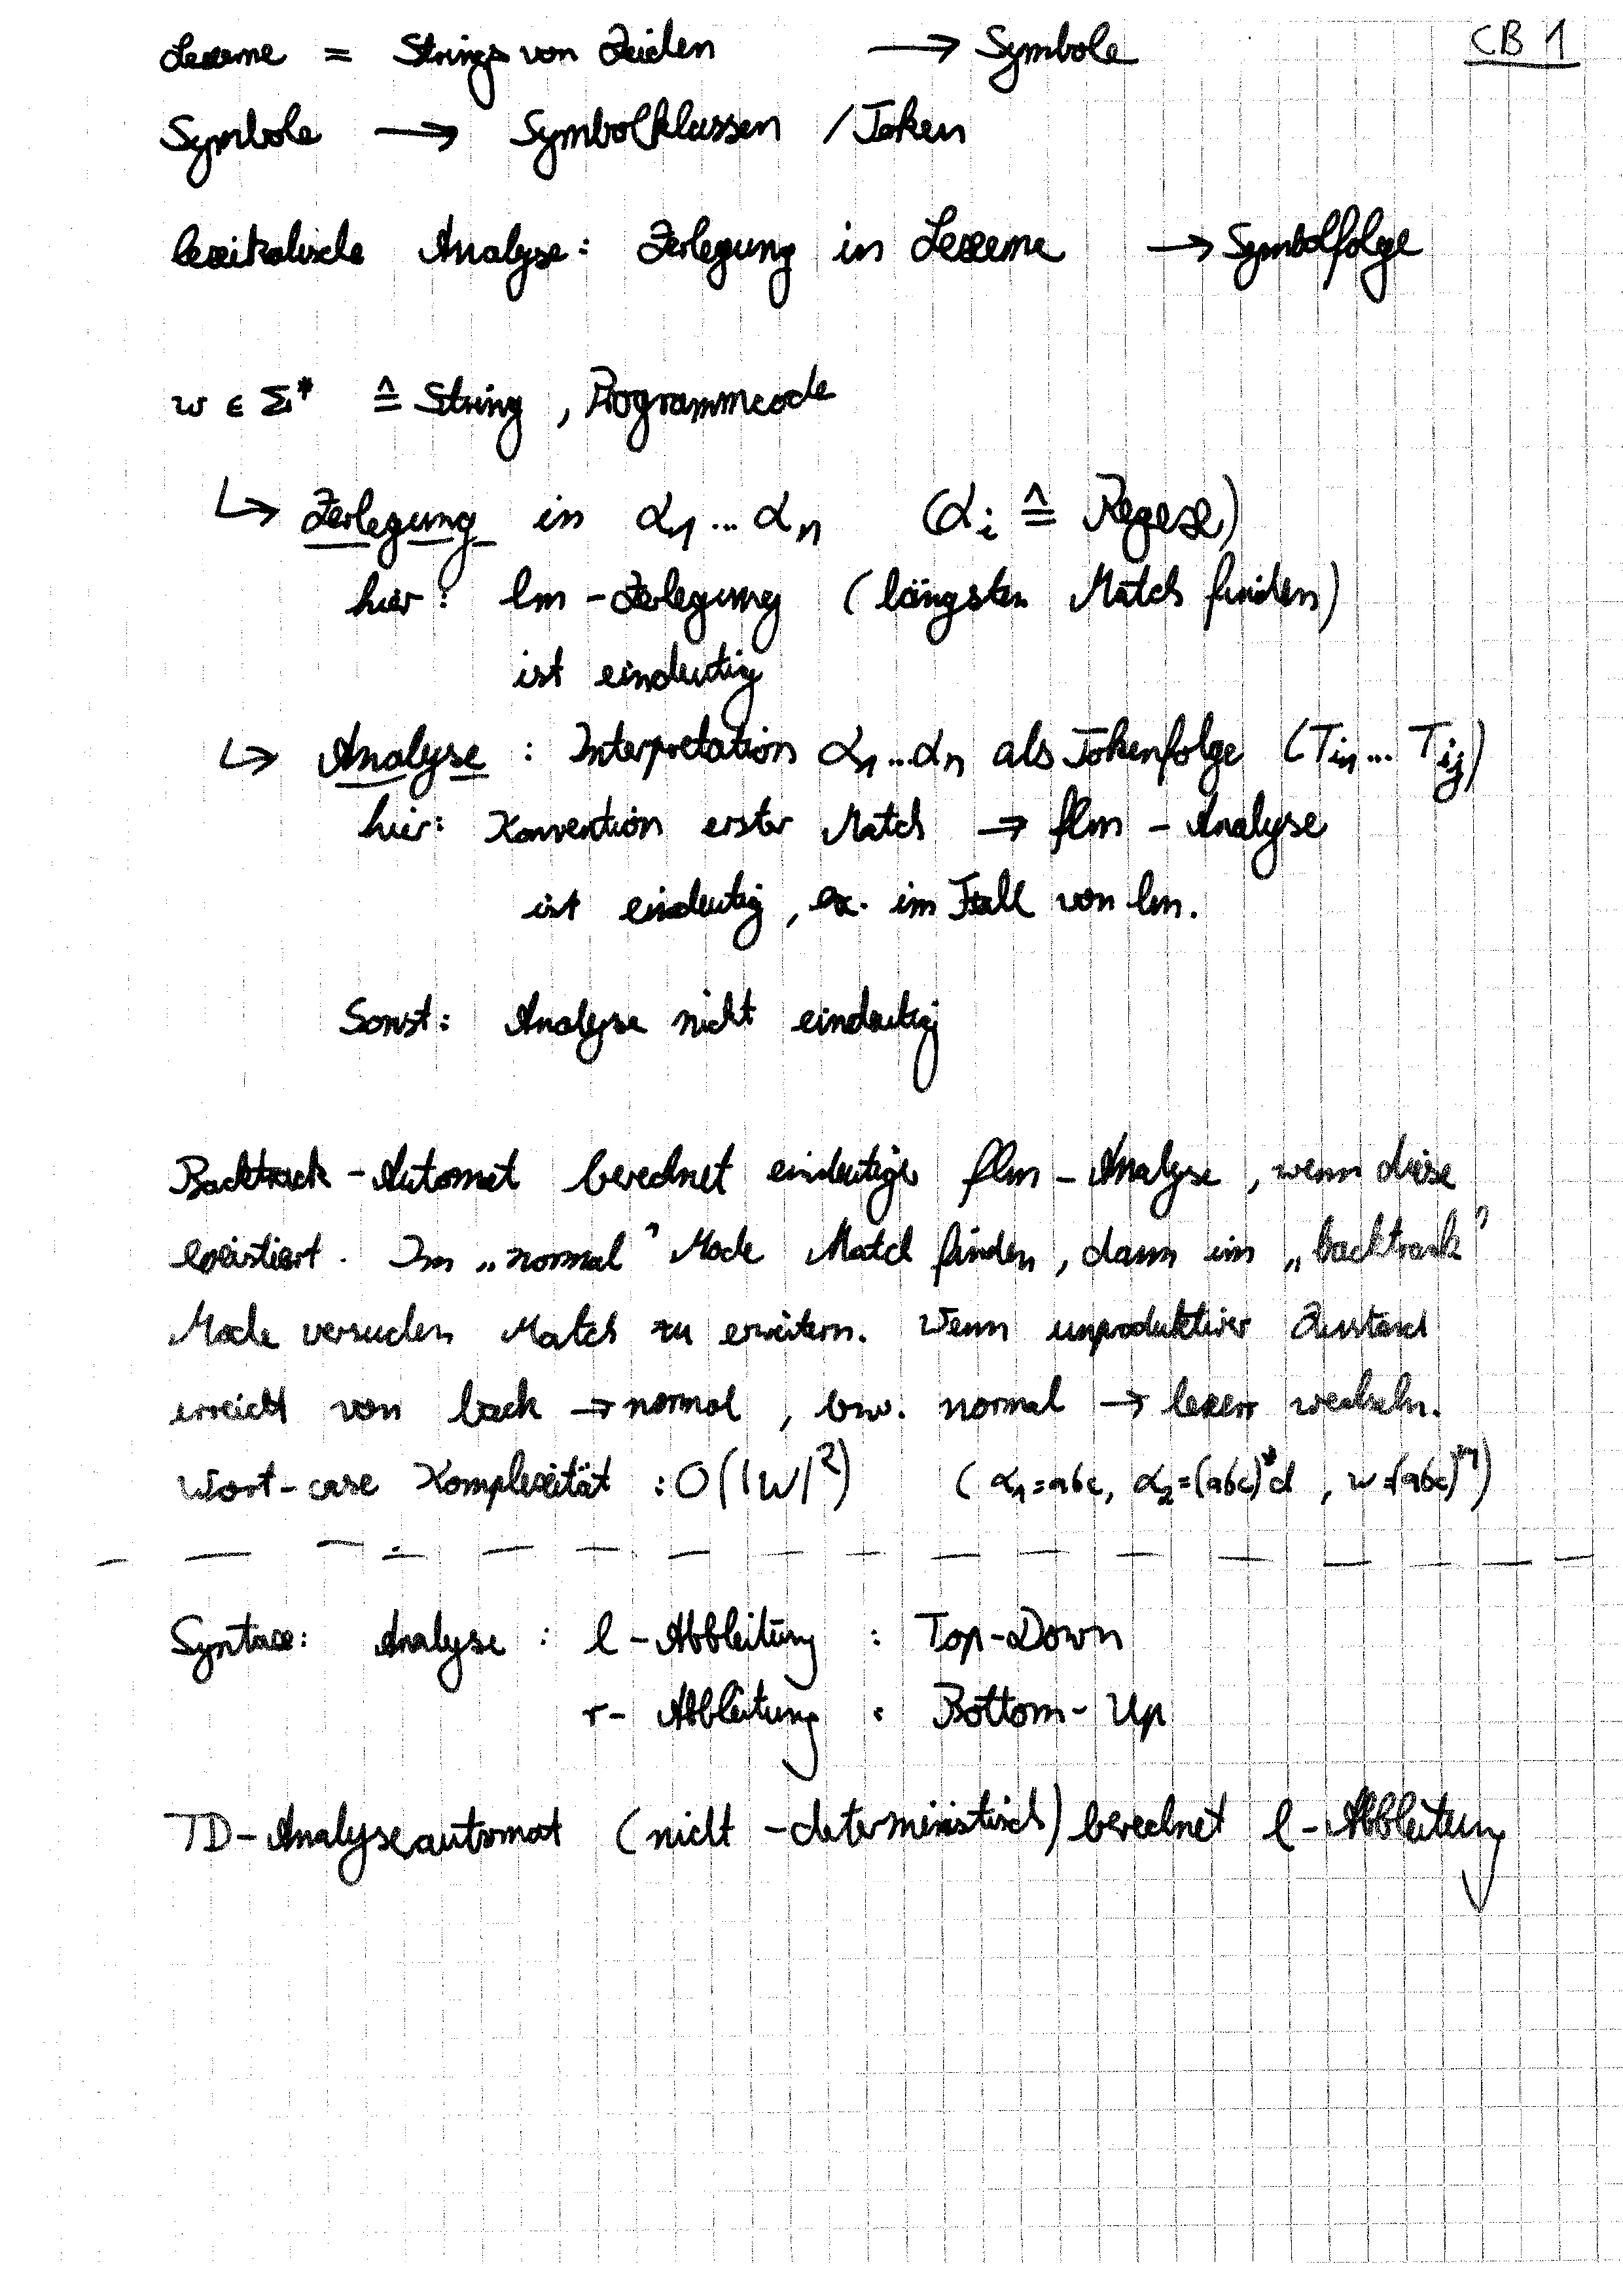 CB 1
Lexeme = Strings von Zeichen → Symbole
Symbole → Symbolklassen / Token
lexikalische Analyse: Zerlegung in Lexeme → Symbolfolge
w ∈ Σ* ≙ String, Programmcode
↳ Zerlegung in α₁...αₙ (αᵢ ≙ Regex)
hier: lm-Zerlegung (längsten Match finden)
ist eindeutig
↳ Analyse: Interpretation α₁...αₙ als Tokenfolge (Tᵢ₁... Tᵢⱼ)
hier: Konvention erster Match → flm-Analyse
ist eindeutig, ex. im Fall von lm.
Sonst: Analyse nicht eindeutig
Backtrack-Automat berechnet eindeutige flm-Analyse, wenn diese
existiert. Im „normal" Mode Match finden, dann im „backtrack"
Mode versuchen Match zu erweitern. Wenn unproduktiver Zustand
erreicht von back → normal, bzw. normal → lexerr wechseln.
Worst-case Komplexität: O(|w|²) (α₁=abc, α₂=(abc)*d, w=(abc)ᵐ)
Syntax: Analyse: l-Abbleitung: Top-Down
r-Abbleitung: Bottom-Up
TD-Analyseautomat (nicht-deterministisch) berechnet l-Abbleitung
↓